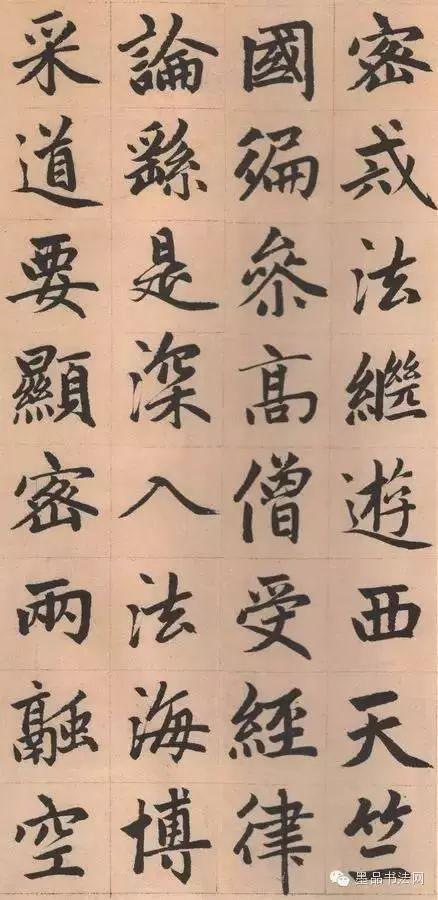 密戒法繼遊西天竺
國徧叅高僧受經律
論繇是深入法海博
采道要顯密兩融空
墨品书法网